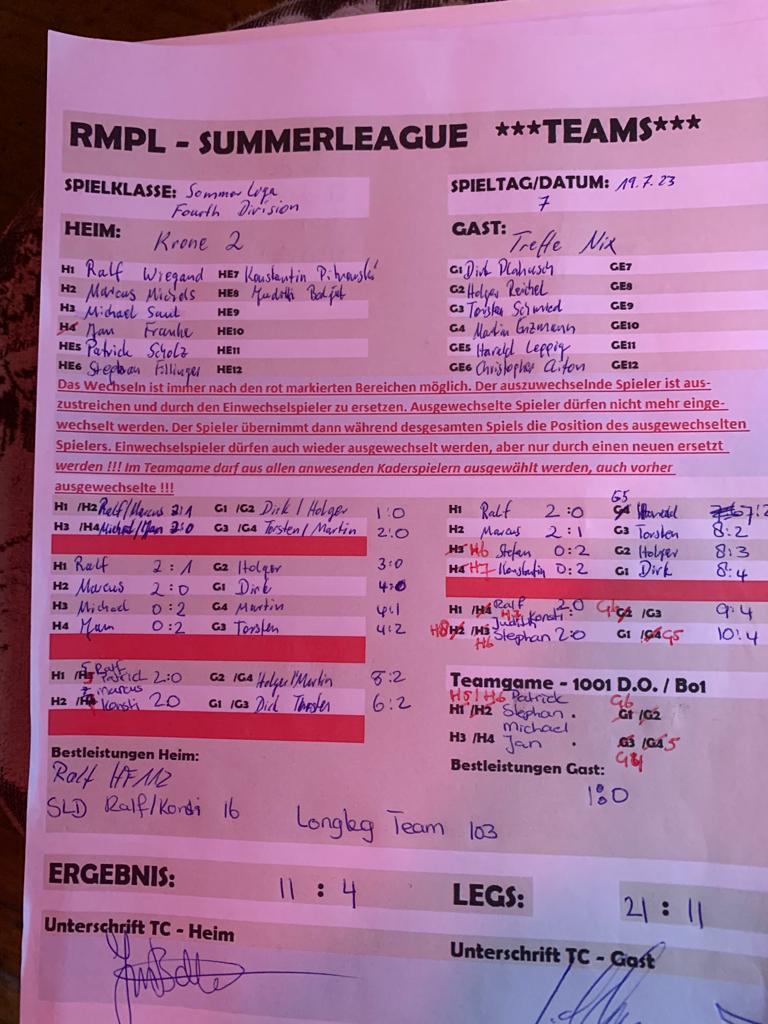 RMPL - SUMMERLEAGUE ***TEAMS***
SPIELKLASSE: Sommer Liga
Fourth Division
SPIELTAG/DATUM: 19.7.23
7
HEIM: Krone 2
GAST: Treffe Nix
H1 Ralf Wiegand HE7 Konstantin G1 Dirk GE7
H2 Marcus HE8 Judith G2 Holger Reichel GE8
H3 Michael Saul HE9 G3 Torsten Schmied GE9
H4 Jan Franke HE10 G4 Martin Enzmann GE10
HE5 Patrick Scholz HE11 GE5 Harald Leppig GE11
HE6 Stephan Fillinger HE12 GE6 Christopher GE12
Das Wechseln ist immer nach den rot markierten Bereichen möglich. Der auszuwechselnde Spieler ist aus-
zustreichen und durch den Einwechselspieler zu ersetzen. Ausgewechselte Spieler dürfen nicht mehr einge-
wechselt werden. Der Spieler übernimmt dann während desgesamten Spiels die Position des ausgewechselten
Spielers. Einwechselspieler dürfen auch wieder ausgewechselt werden, aber nur durch einen neuen ersetzt
werden !!! Im Teamgame darf aus allen anwesenden Kaderspielern ausgewählt werden, auch vorher
ausgewechselte !!!
H1 /H2 Ralf/Marcus 2:1 G1 /G2 Dirk / Holger 1:0
H3 /H4 Michael/Jan 2:0 G3 /G4 Torsten / Martin 2:0
H1 Ralf 2:1 G2 Holger 3:0
H2 Marcus 2:0 G1 Dirk 4:0
H3 Michael 0:2 G4 Martin 4:1
H4 Jan 0:2 G3 Torsten 4:2
H1 /H3 5 Ralf
Patrick 2:0 G2 /G4 Holger/Martin 8:2
H2 /H4 7 Marcus
Konsti 2:0 G1 /G3 Dirk Torsten 6:2
G5
H1 Ralf 2:0 G4 7:2
H2 Marcus 2:1 G3 Torsten 8:2
H3 H6 Stefan 0:2 G2 Holger 8:3
H4 H7 Konstantin 0:2 G1 Dirk 8:4
H1 /H4 H7 Ralf
Konsti 2:0 G6 G2 /G3 9:4
H8 H2 /H3 H6 Judith
Stephan 2:0 G1 /G4 G5 10:4
Teamgame - 1001 D.O. / Bo1
H5 / H6 Patrick G6
H1 /H2 Stephan G1 /G2
Michael
H3 /H4 Jan G3 /G4 5
G4
Bestleistungen Gast:
1:0
Bestleistungen Heim:
Ralf HF 112
SLD Ralf/Konsti 16 Longleg Team 103
ERGEBNIS: 11 : 4 LEGS: 21 : 11
Unterschrift TC - Heim
Unterschrift TC - Gast